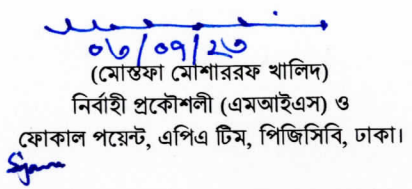 ০৬/০৭/২৩
(মোস্তফা মোশাররফ খালিদ)
নির্বাহী প্রকৌশলী (এমআইএস) ও
ফোকাল পয়েন্ট, এপিএ টিম, পিজিসিবি, ঢাকা।